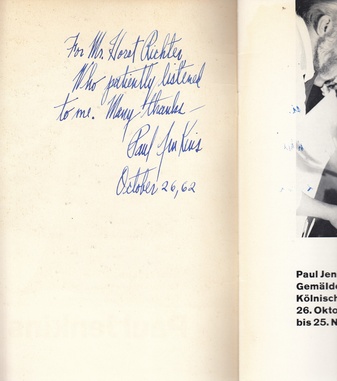 For Mr. Horst Richter
Who patiently listened
to me. Many thanks —
Paul Jenkins
October 26, 62
Paul Jen
Gemälde
Kölnisch
26. Okto
bis 25. N